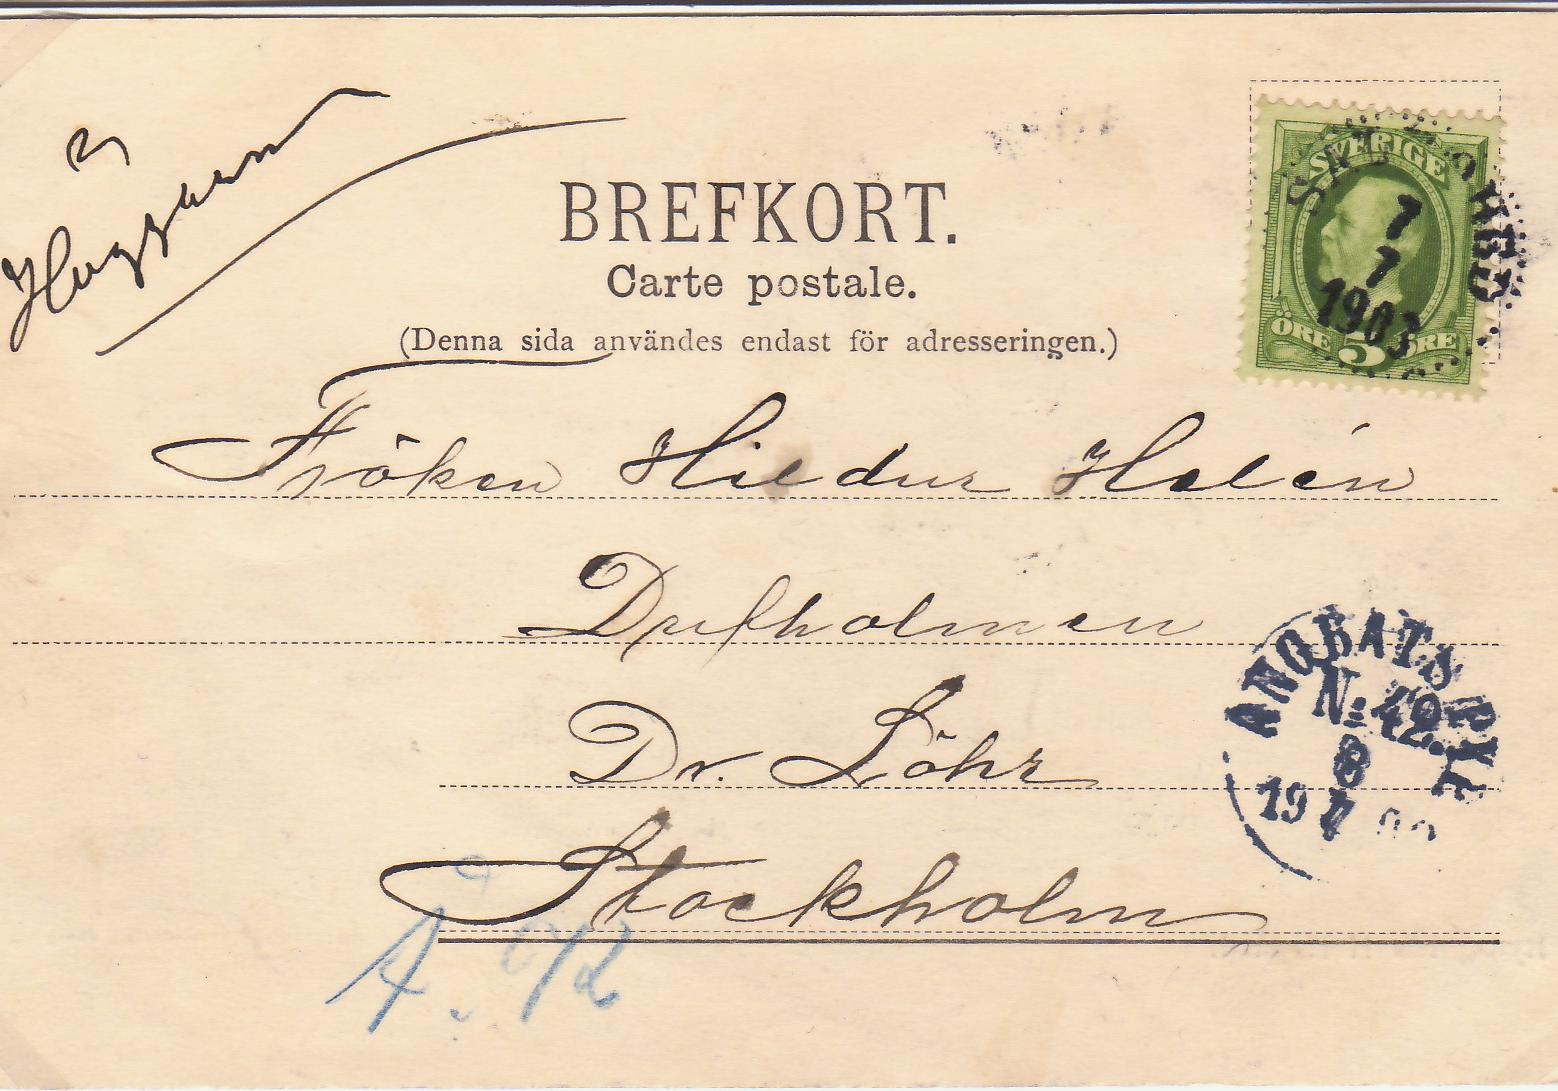 BREFKORT.
Carte postale.
(Denna sida användes endast för adresseringen.)
SVERIGE
7
7
1903
ÖRE 5 ÖRE
Fröken Hildur Helén
Drefholmen
Dr. Löhr
Stockholm
ÅNGBÅTS PXP
No 42.
8
19 7 03